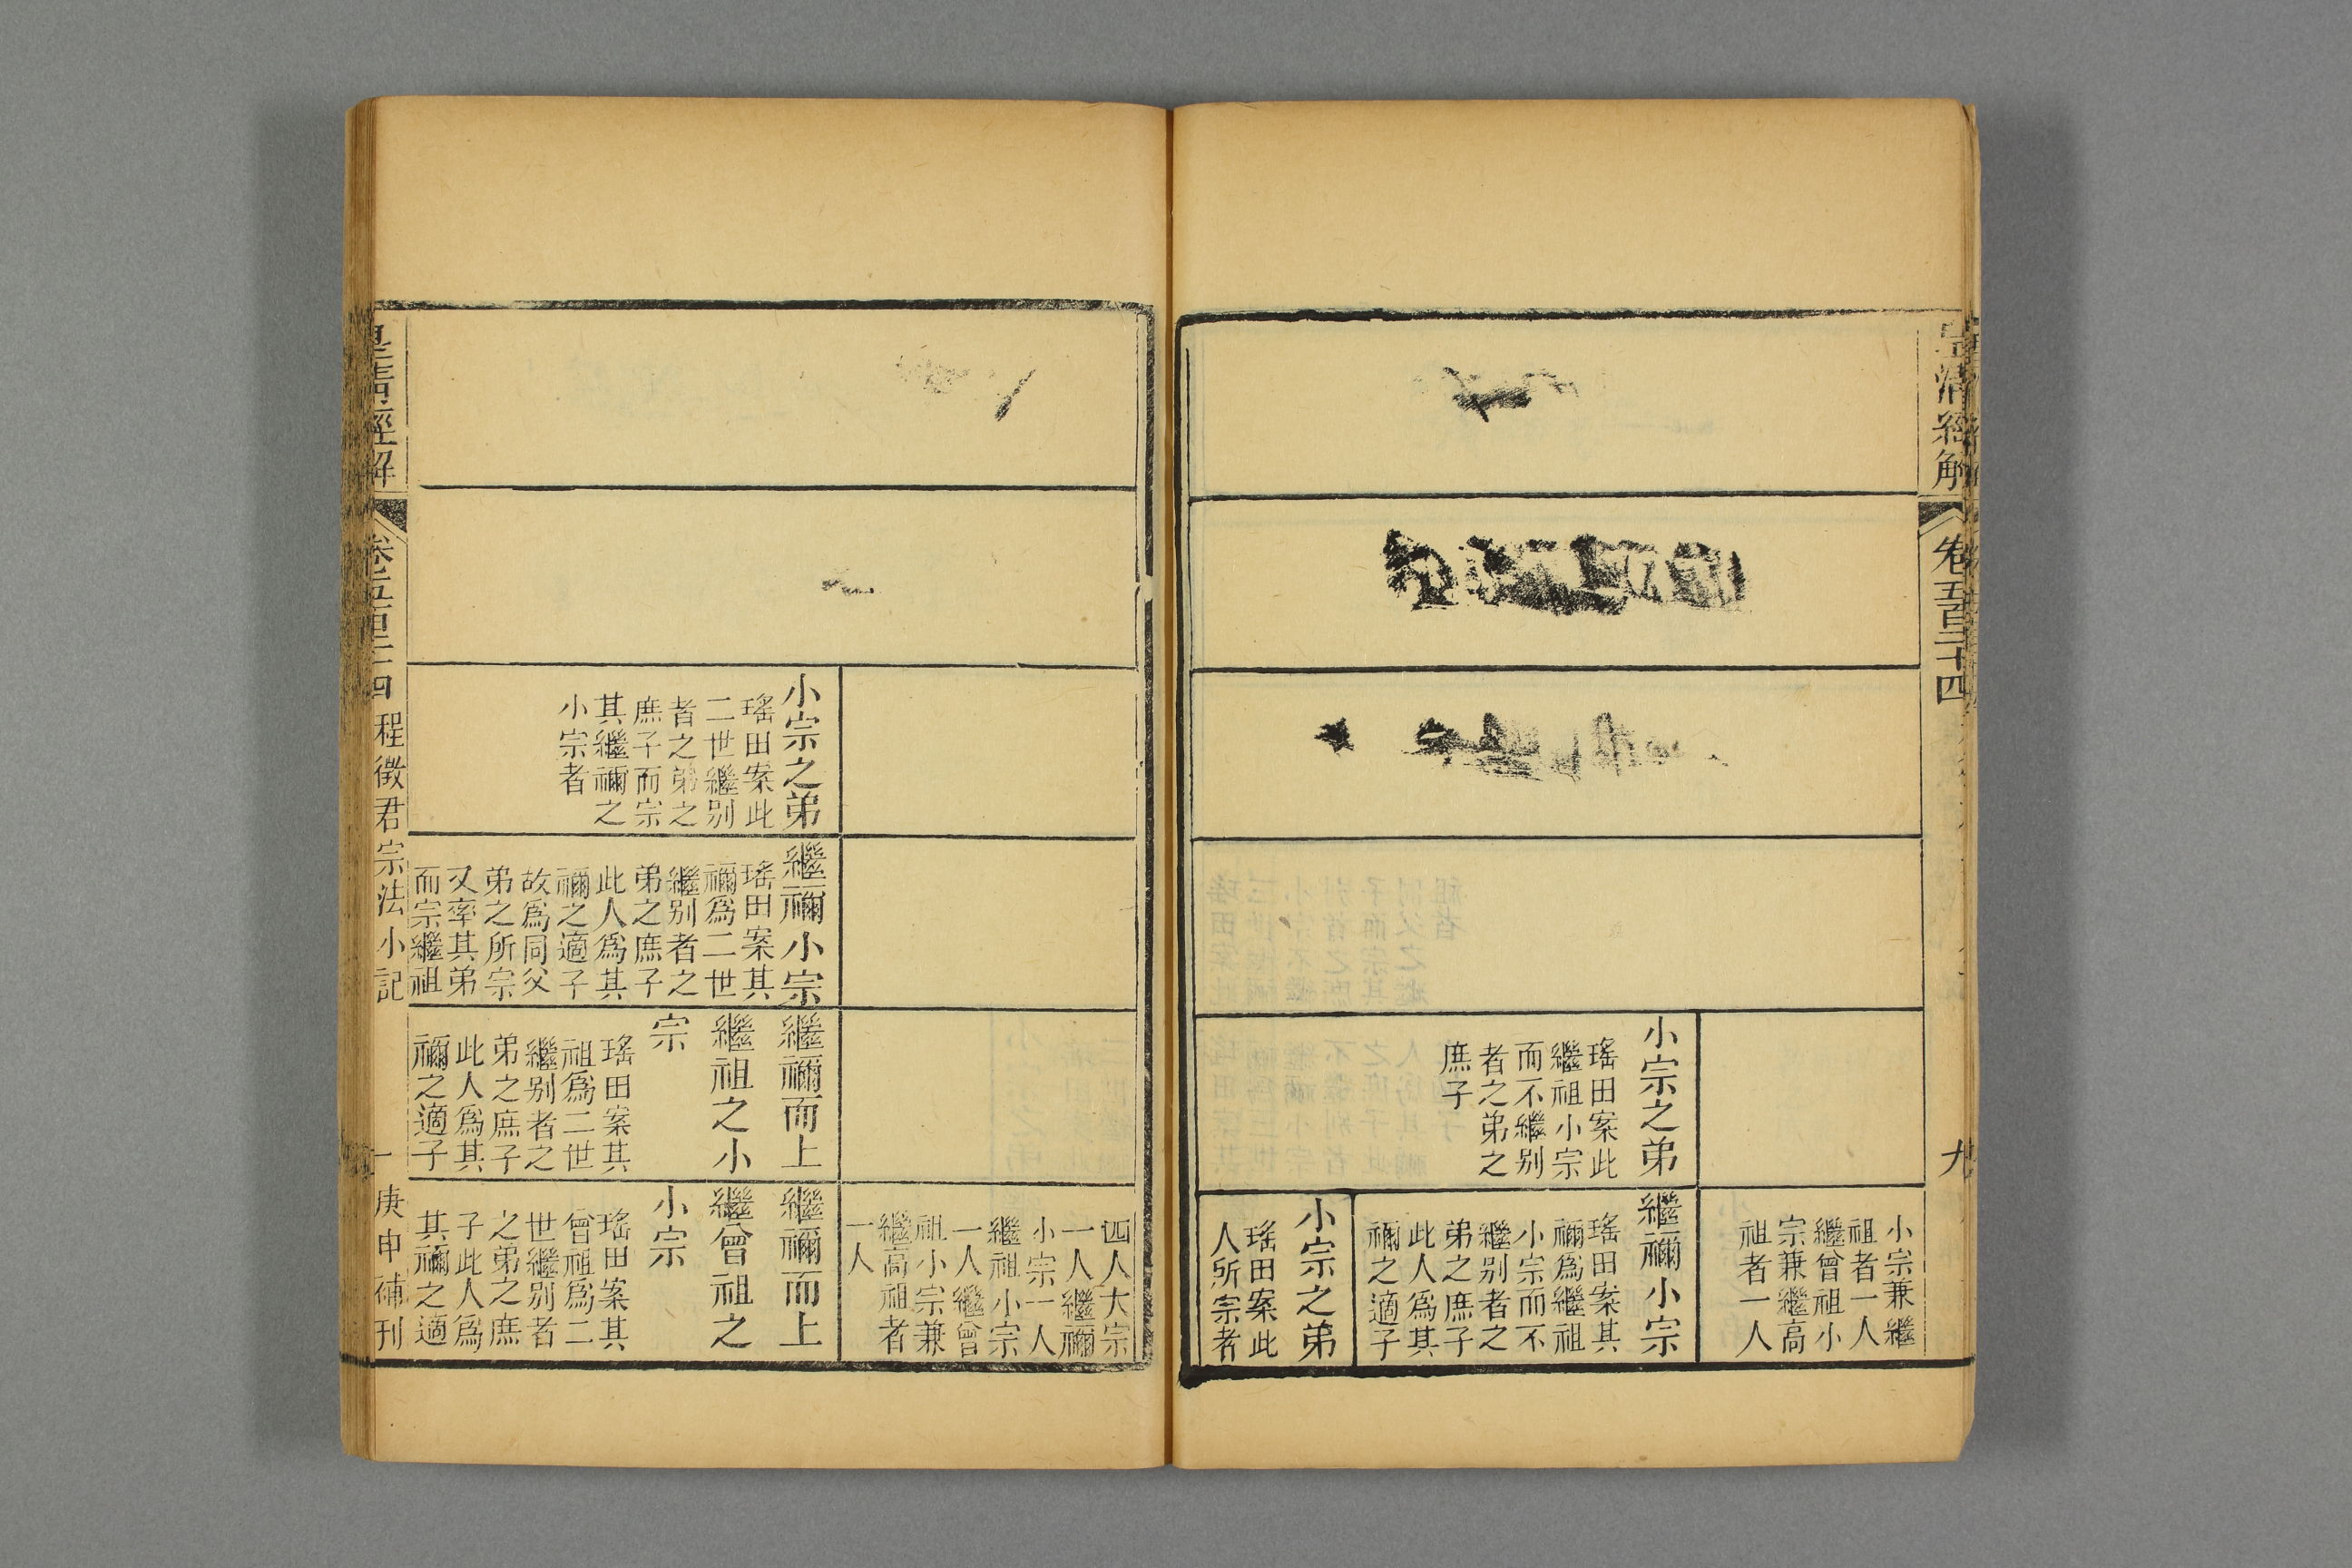 皇清經解
卷五百二十四
九
小宗之弟
瑤田案此
繼祖小宗
而不繼別
者之弟之
庶子
小宗兼繼
祖者一人
繼曾祖小
宗兼繼高
祖者一人
繼禰小宗
瑤田案其
禰爲繼祖
小宗而不
繼別者之
弟之庶子
此人爲其
禰之適子
小宗之弟
瑤田案此
人所宗者
小宗之弟
瑤田案此
二世繼別
者之弟之
庶子而宗
其繼禰之
小宗者
繼禰小宗
瑤田案其
禰爲二世
繼別者之
弟之庶子
此人爲其
禰之適子
故爲同父
弟之所宗
又率其弟
而宗繼祖
繼禰而上
繼祖之小
宗
瑤田案其
祖爲二世
繼別者之
弟之庶子
此人爲其
禰之適子
四人大宗
一人繼禰
小宗一人
繼祖小宗
一人繼曾
祖小宗兼
繼高祖者
一人
繼禰而上
繼曾祖之
小宗
瑤田案其
曾祖爲二
世繼別者
之弟之庶
子此人爲
其禰之適
皇清經解
卷五百二十四
程徵君宗法小記
庚申補刊